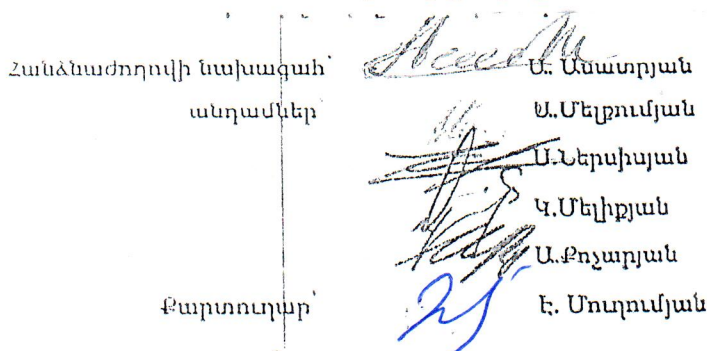 Հանձնաժողովի նախագահ՝ Ս. Ասատրյան
անդամներ՝ Ա.Մելքումյան
Ս.Ներսիսյան
Կ.Մելիքյան
Ա.Քոչարյան
Քարտուղար՝ Է. Մուղումյան